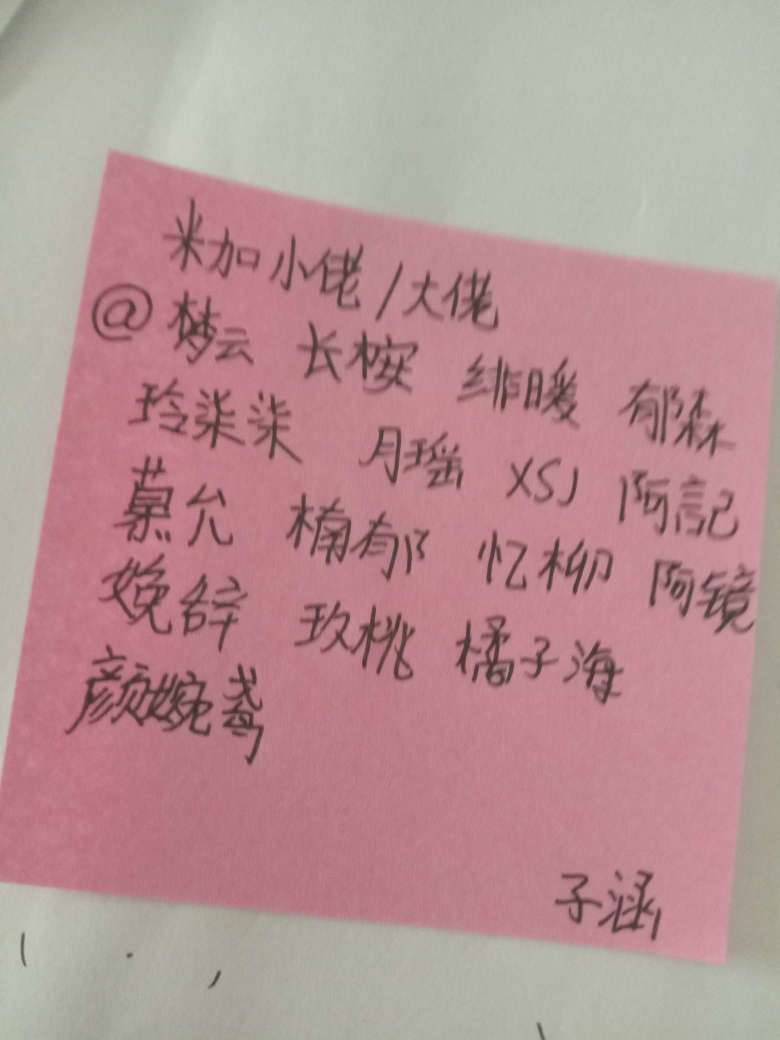 米加小佬/大佬
@梦云 长桉 绯暖 郁森
玲柒柒 月瑶 XSJ 阿記
慕允 楠郁 忆柳 阿镜
婏辞 玖桃 橘子海
颜婉鸢
子涵